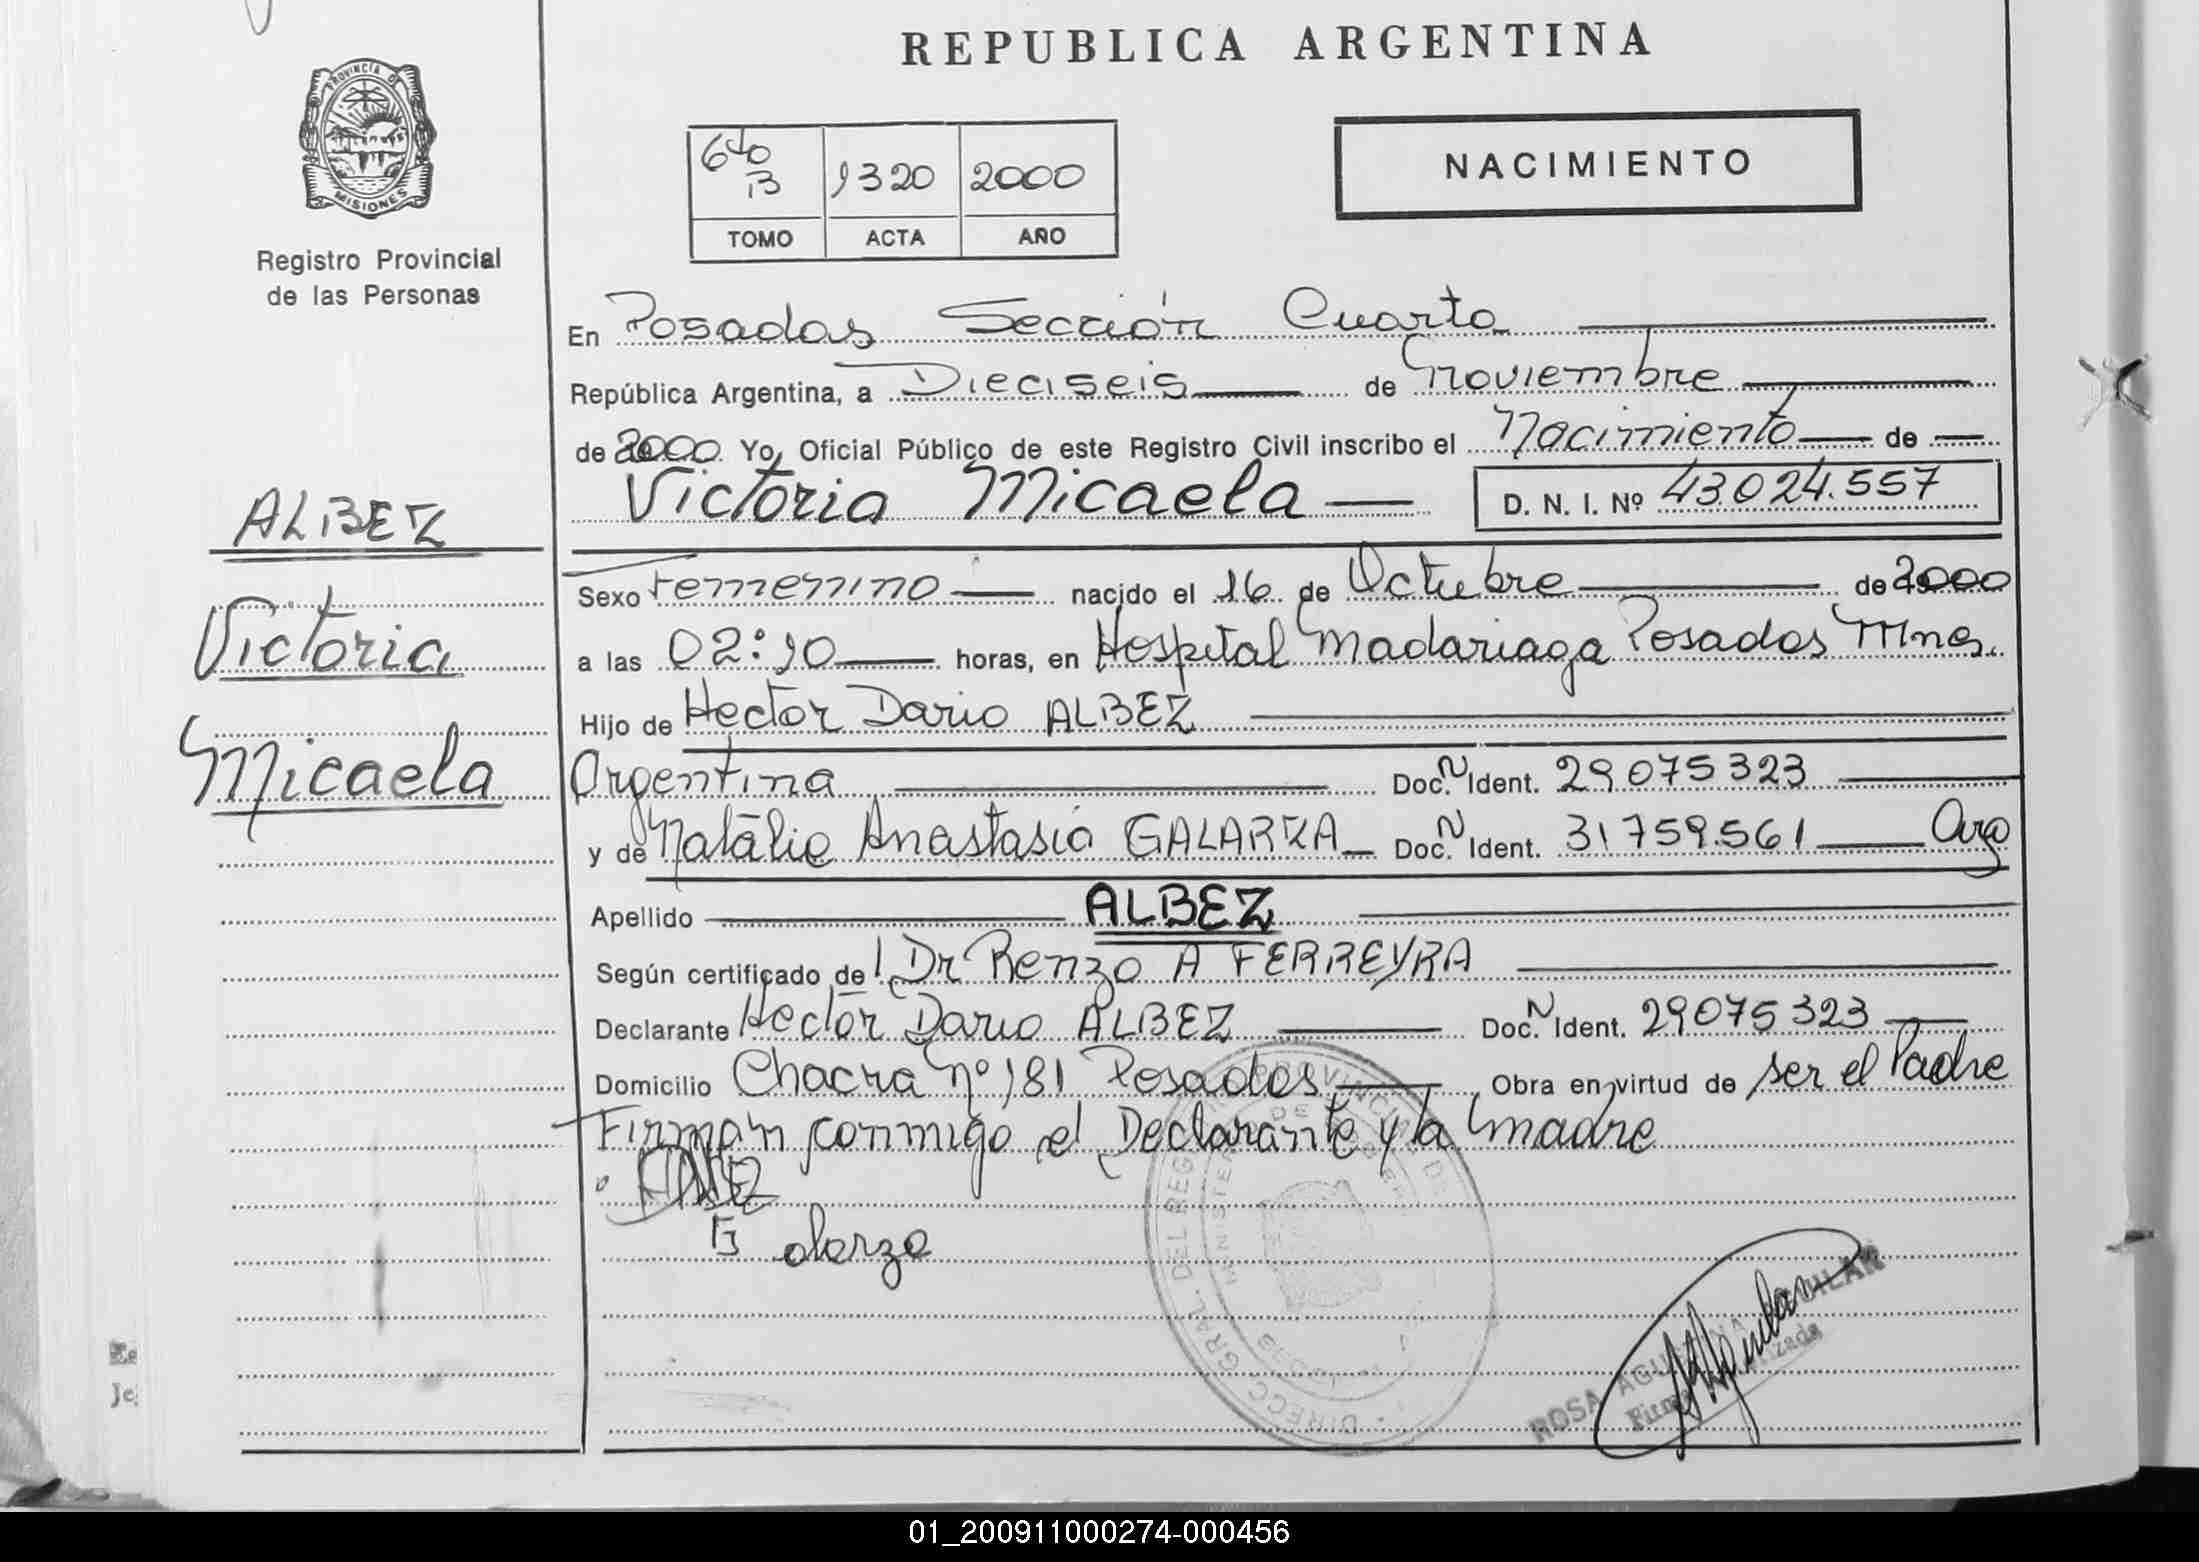 REPUBLICA ARGENTINA
PROVINCIA DE
MISIONES
Registro Provincial
de las Personas
640 B 1320 2000
TOMO ACTA AÑO
NACIMIENTO
En Posadas Sección Cuarta
República Argentina, a Dieciseis de Noviembre
de 2000 Yo, Oficial Público de este Registro Civil inscribo el Nacimiento de
Victoria Micaela D. N. I. Nº 43.024.557
ALBEZ
Victoria
Micaela
Sexo Femenino nacido el 16 de Octubre de 2000
a las 02:10 horas, en Hospital Madariaga Posadas Mnes.
Hijo de Hector Dario ALBEZ
Argentina Doc. N Ident. 29075323
y de Natalia Anastasia GALARZA Doc. N Ident. 31759.561 Arg
Apellido ALBEZ
Según certificado de Dr Renzo A FERREYRA
Declarante Hector Dario ALBEZ Doc. N Ident. 29075323
Domicilio Chacra nº 181 Posadas Obra en virtud de ser el Padre
Firman conmigo el Declarante y la madre
DIRECC. GRAL. DEL REG PROVINCIAL DE
ROSA AGUILAR
01_200911000274-000456